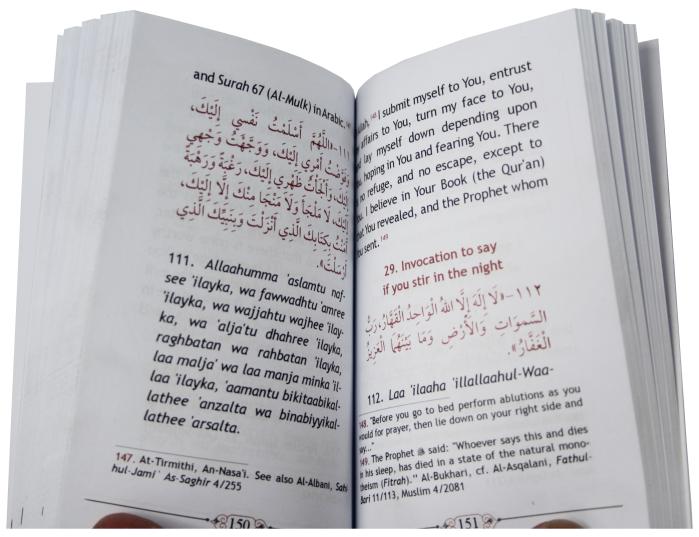 and Surah 67 (Al-Mulk) in Arabic. 147
١١١- «اللَّهُمَّ أَسْلَمْتُ نَفْسِي إِلَيْكَ،
وَفَوَّضْتُ أَمْرِي إِلَيْكَ، وَوَجَّهْتُ وَجْهِي
إِلَيْكَ، وَأَلْجَأْتُ ظَهْرِي إِلَيْكَ، رَغْبَةً وَرَهْبَةً
إِلَيْكَ، لَا مَلْجَأَ وَلَا مَنْجَا مِنْكَ إِلَّا إِلَيْكَ،
آمَنْتُ بِكِتَابِكَ الَّذِي أَنْزَلْتَ وَبِنَبِيِّكَ الَّذِي
أَرْسَلْتَ».
111. Allaahumma 'aslamtu naf-
see 'ilayka, wa fawwadhtu 'amree
'ilayka, wa wajjahtu wajhee 'ilay-
ka, wa 'alja'tu dhahree 'ilayka,
raghbatan wa rahbatan 'ilayka,
laa malja' wa laa manja minka 'il-
laa 'ilayka, 'aamantu bikitaabikal-
lathee 'anzalta wa binabiyyikal-
lathee 'arsalta.
147. At-Tirmithi, An-Nasa'i. See also Al-Albani, Sahi
hul-Jami' As-Saghir 4/255
150
I submit myself to You, entrust
affairs to You, turn my face to You,
lay myself down depending upon
hoping in You and fearing You. There
no refuge, and no escape, except to
I believe in Your Book (the Qur'an)
You revealed, and the Prophet whom
sent. 149
29. Invocation to say
if you stir in the night
١١٢- «لَا إِلَهَ إِلَّا اللهُ الْوَاحِدُ الْقَهَّارُ، رَبُّ
السَّمَوَاتِ وَالْأَرْضِ وَمَا بَيْنَهُمَا الْعَزِيزُ
الْغَفَّارُ».
112. Laa 'ilaaha 'illallaahul-Waa-
148. "Before you go to bed perform ablutions as you
would for prayer, then lie down on your right side and
say..."
149. The Prophet ﷺ said: "Whoever says this and dies
in his sleep, has died in a state of the natural mono-
theism (Fitrah)." Al-Bukhari, cf. Al-Asqalani, Fathul-
Bari 11/113, Muslim 4/2081
151